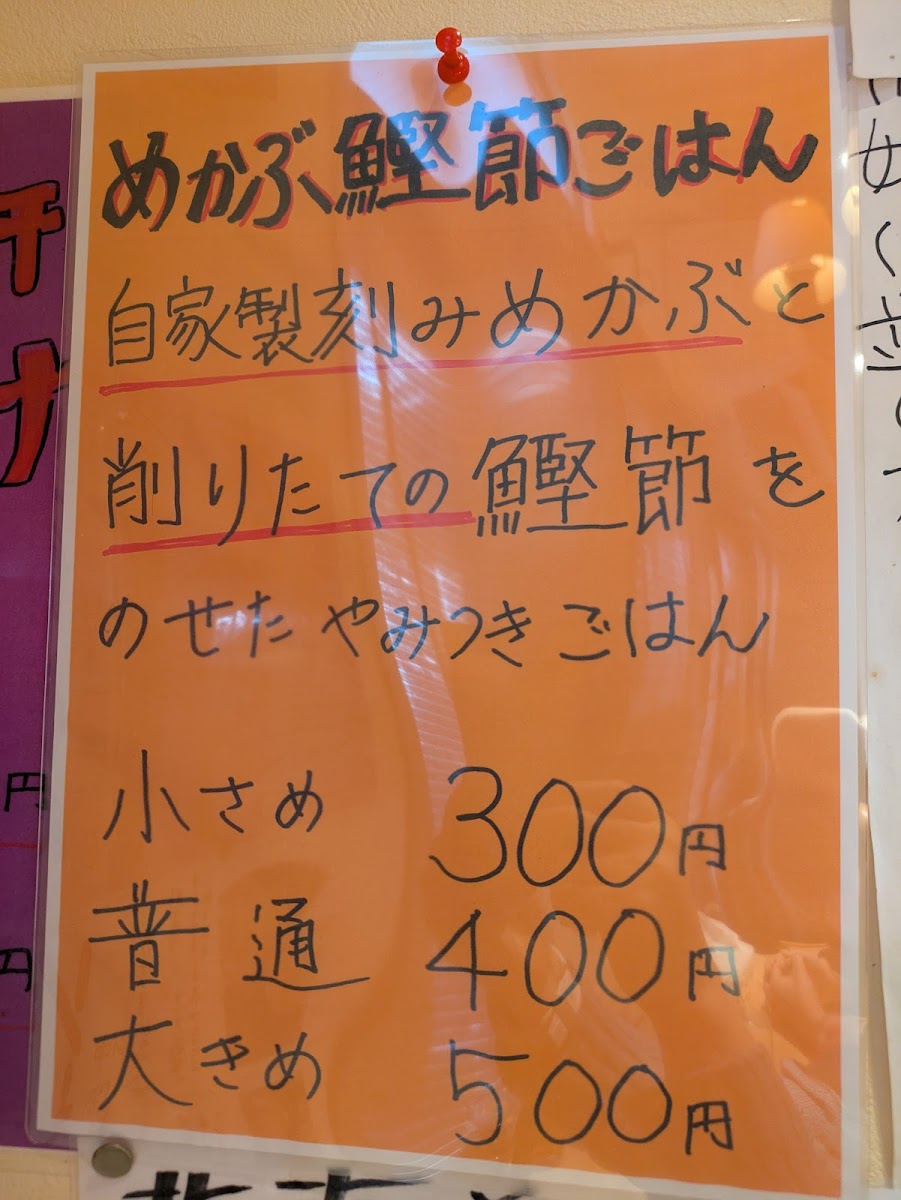 めかぶ鰹節ごはん
自家製刻みめかぶと
削りたての鰹節を
のせたやみつきごはん
小さめ 300円
普通 400円
大きめ 500円
円
円